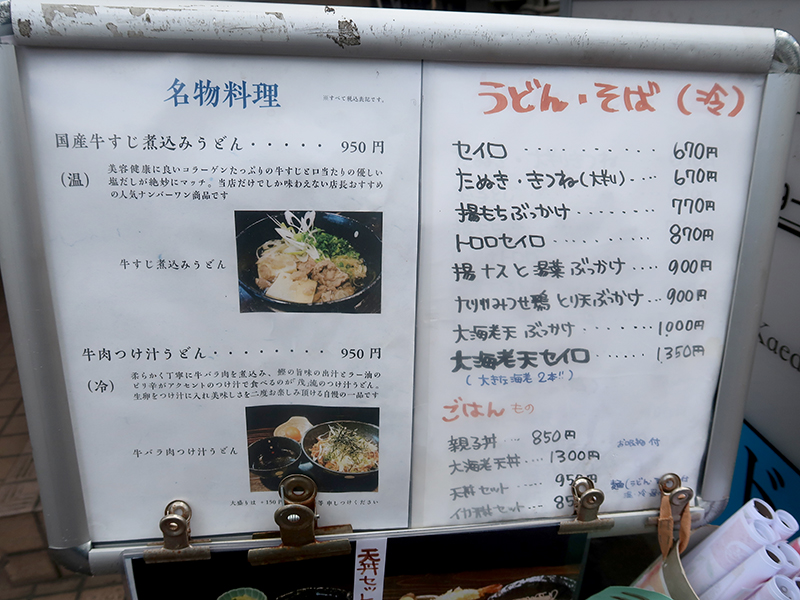 名物料理
※すべて税込表記です。
国産牛すじ煮込みうどん・・・・・ 950円
(温)
美容健康に良いコラーゲンたっぷりの牛すじと口当たりの優しい
塩だしが絶妙にマッチ。当店だけでしか味わえない店長おすすめ
の人気ナンバーワン商品です
牛すじ煮込みうどん
牛肉つけ汁うどん・・・・・・・・ 950円
(冷)
柔らかく丁寧に牛バラ肉を煮込み、鰹の旨味の出汁とラー油の
ピリ辛がアクセントのつけ汁で食べるのが「茂」流のつけ汁うどん。
生卵をつけ汁に入れ美味しさを二度お楽しみ頂ける自慢の一品です
牛バラ肉つけ汁うどん
大盛りは+150円
申しつけください
うどん・そば(冷)
セイロ ・・・・・・・・・・ 670円
たぬき・きつね(大判)・・・・ 670円
揚もちぶっかけ・・・・・・・ 770円
トロロセイロ ・・・・・・・・ 870円
揚ナスと湯葉ぶっかけ・・・・ 900円
とり天ぶっかけ・・・ 900円
大海老天ぶっかけ・・・・・・・ 1,000円
大海老天セイロ・・・・・ 1,350円
(大きな海老2本!!)
ごはんもの
親子丼・・・・ 850円
お吸物付
大海老天丼・・・ 1300円
天丼セット・・・・ 95
イカ天丼セット・・・ 8
天丼セット